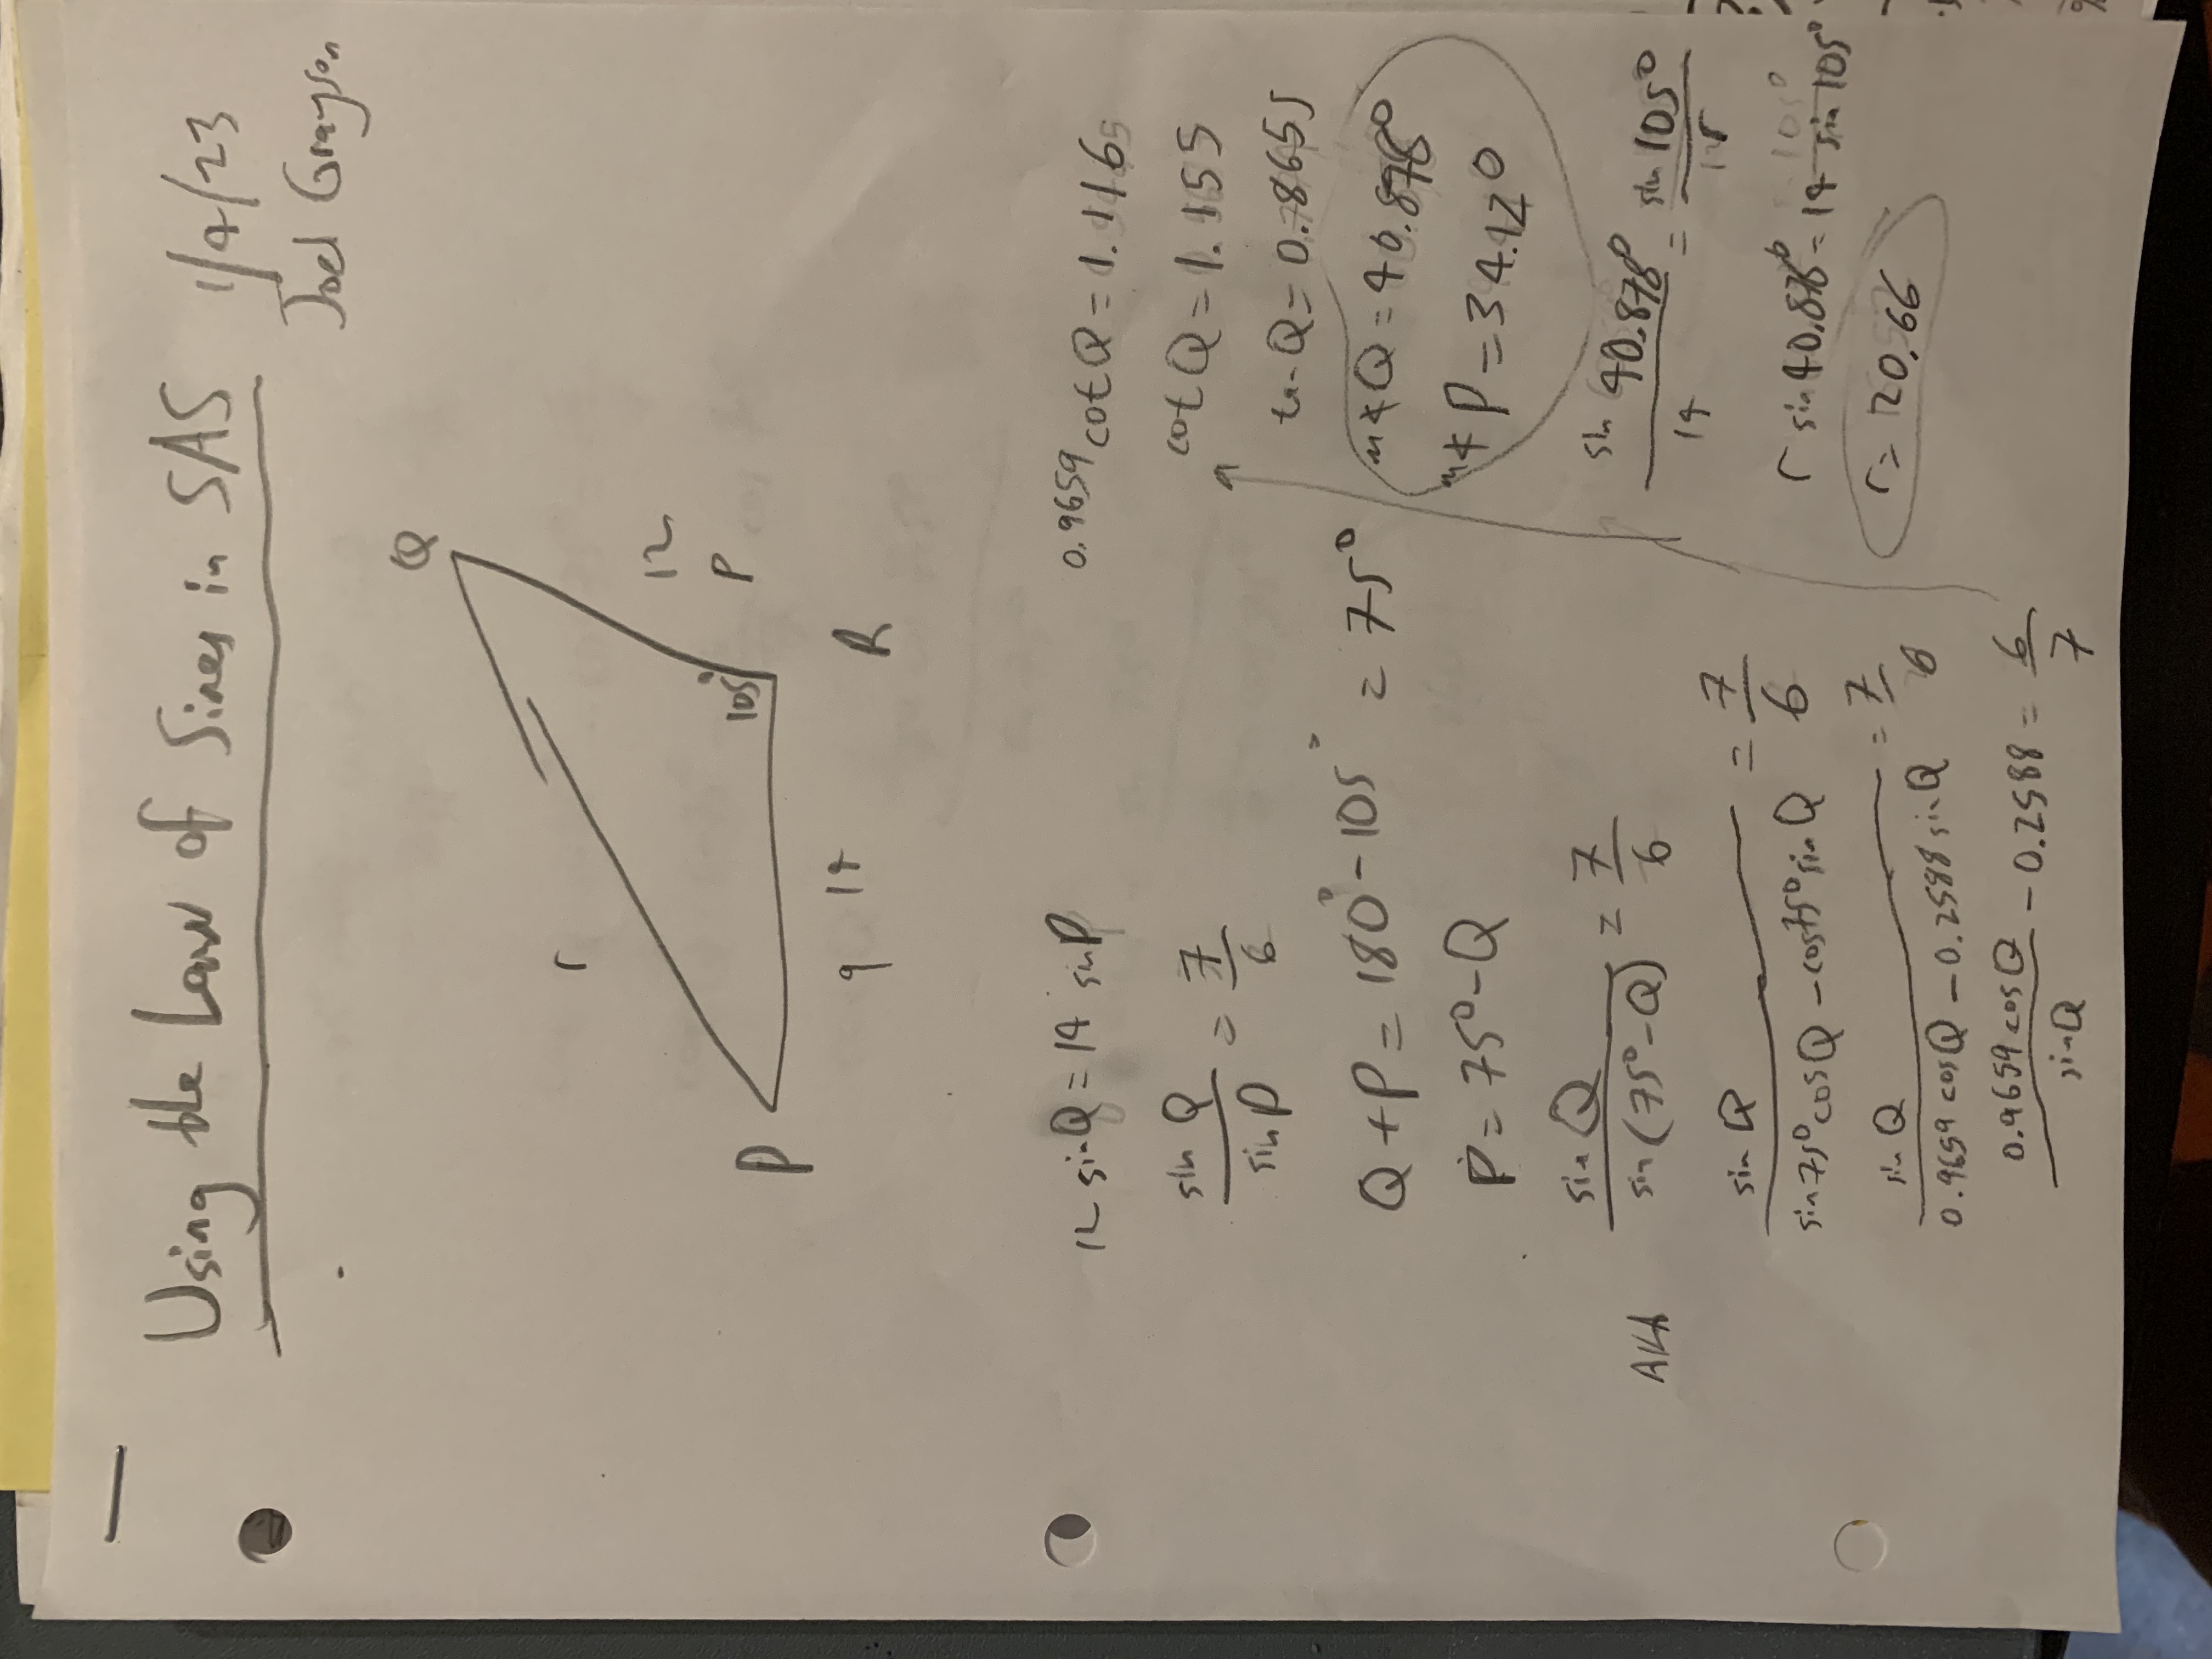 Using the Law of Sines in SAS
1/4/23
Joel Grayson
Q
r
12
P
105°
P
q 14
R
12 sin Q = 14 sin P
sin Q / sin P = 7/6
Q + P = 180° - 105° = 75°
P = 75° - Q
AKA
sin Q / sin (75° - Q) = 7/6
sin Q / sin 75° cos Q - cos 75° sin Q = 7/6
sin Q / 0.9659 cos Q - 0.2588 sin Q = 7/6
0.9659 cos Q / sin Q - 0.2588 = 6/7
0.9659 cot Q = 1.116
cot Q = 1.155
tan Q = 0.8655
m∡Q = 40.878°
m∡P = 34.12°
sin 40.878° / 14 = sin 105° / r
r sin 40.878° = 14 sin 105°
r = 20.66